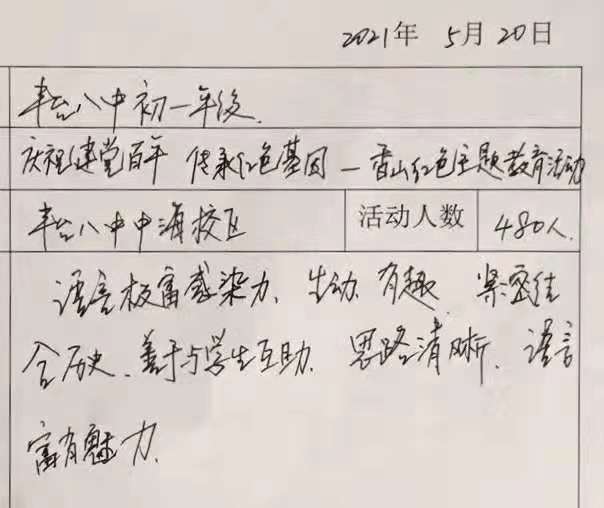 2021年 5月 20日
丰台八中初一年级.
庆祝建党百年 传承红色基因 — 香山红色主题教育活动
丰台八中中海校区 活动人数 480人.
语言极富感染力、生动、有趣、紧密结
合历史、善于与学生互助、思路清晰、语言
富有魅力.